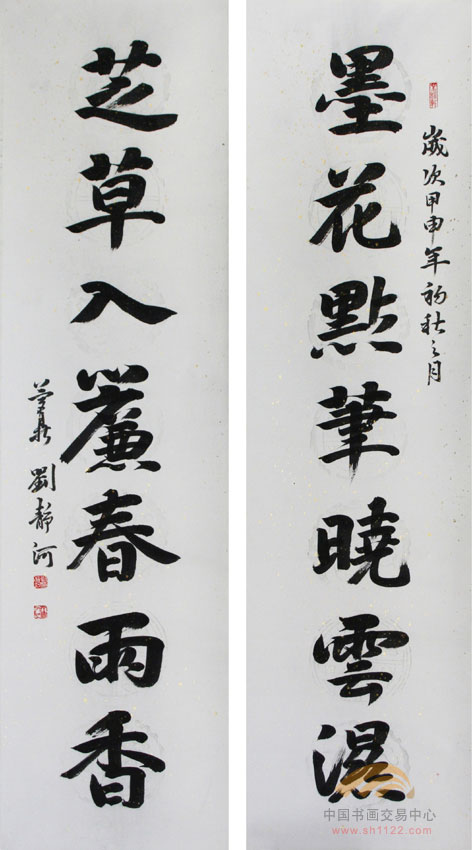 歲次甲申年初秋之月
墨花點筆曉雲濕
芝草入簾春雨香
劉靜河
中国书画交易中心
www.sh1122.com